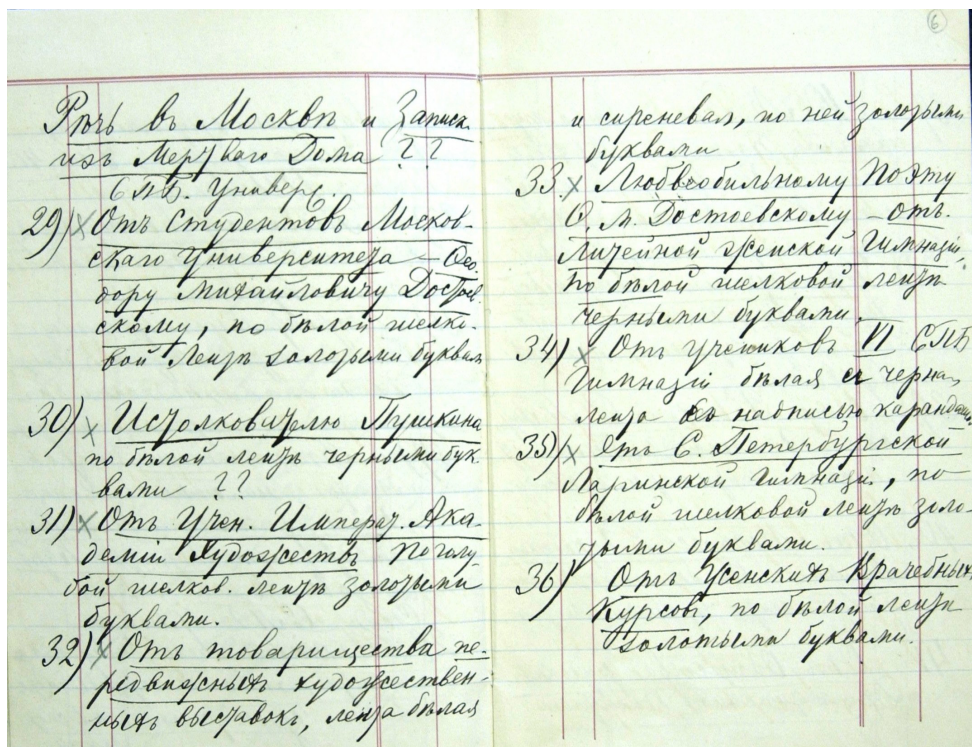 Рѣчь въ Москвѣ и Записк
изъ Мертваго Дома ??
СПБ. Универс.
29) × Отъ Студентовъ Москов-
скаго Университета – Ѳео
дору Михайловичу Достоев
скому, по бѣлой шелко-
вой лентѣ золотыми буквам
30) × Истолкователю Пушкина
по бѣлой лентѣ черными бук
вами ??
31) × Отъ Учен. Императ. Ака-
деміи Художествъ по голу-
бой шелков. лентѣ золотыми
буквами.
32) × Отъ товарищества пе-
редвижныхъ художествен-
ныхъ выставокъ, лента бѣлая
6
и сиреневая, по ней золотыми
буквами
33 × Любвеобильному Поэту
Ѳ. М. Достоевскому – отъ
Литейной женской Гимназіи,
по бѣлой шелковой лентѣ
черными буквами.
34) × Отъ учениковъ VI СПБ
Гимназіи бѣлая и черная
лента съ надписью карандаш
35) × Отъ С. Петербургской
Ларинской Гимназіи, по
бѣлой шелковой лентѣ золо-
тыми буквами.
36) Отъ Женскихъ Врачебныхъ
Курсовъ, по бѣлой лентѣ
золотыми буквами.